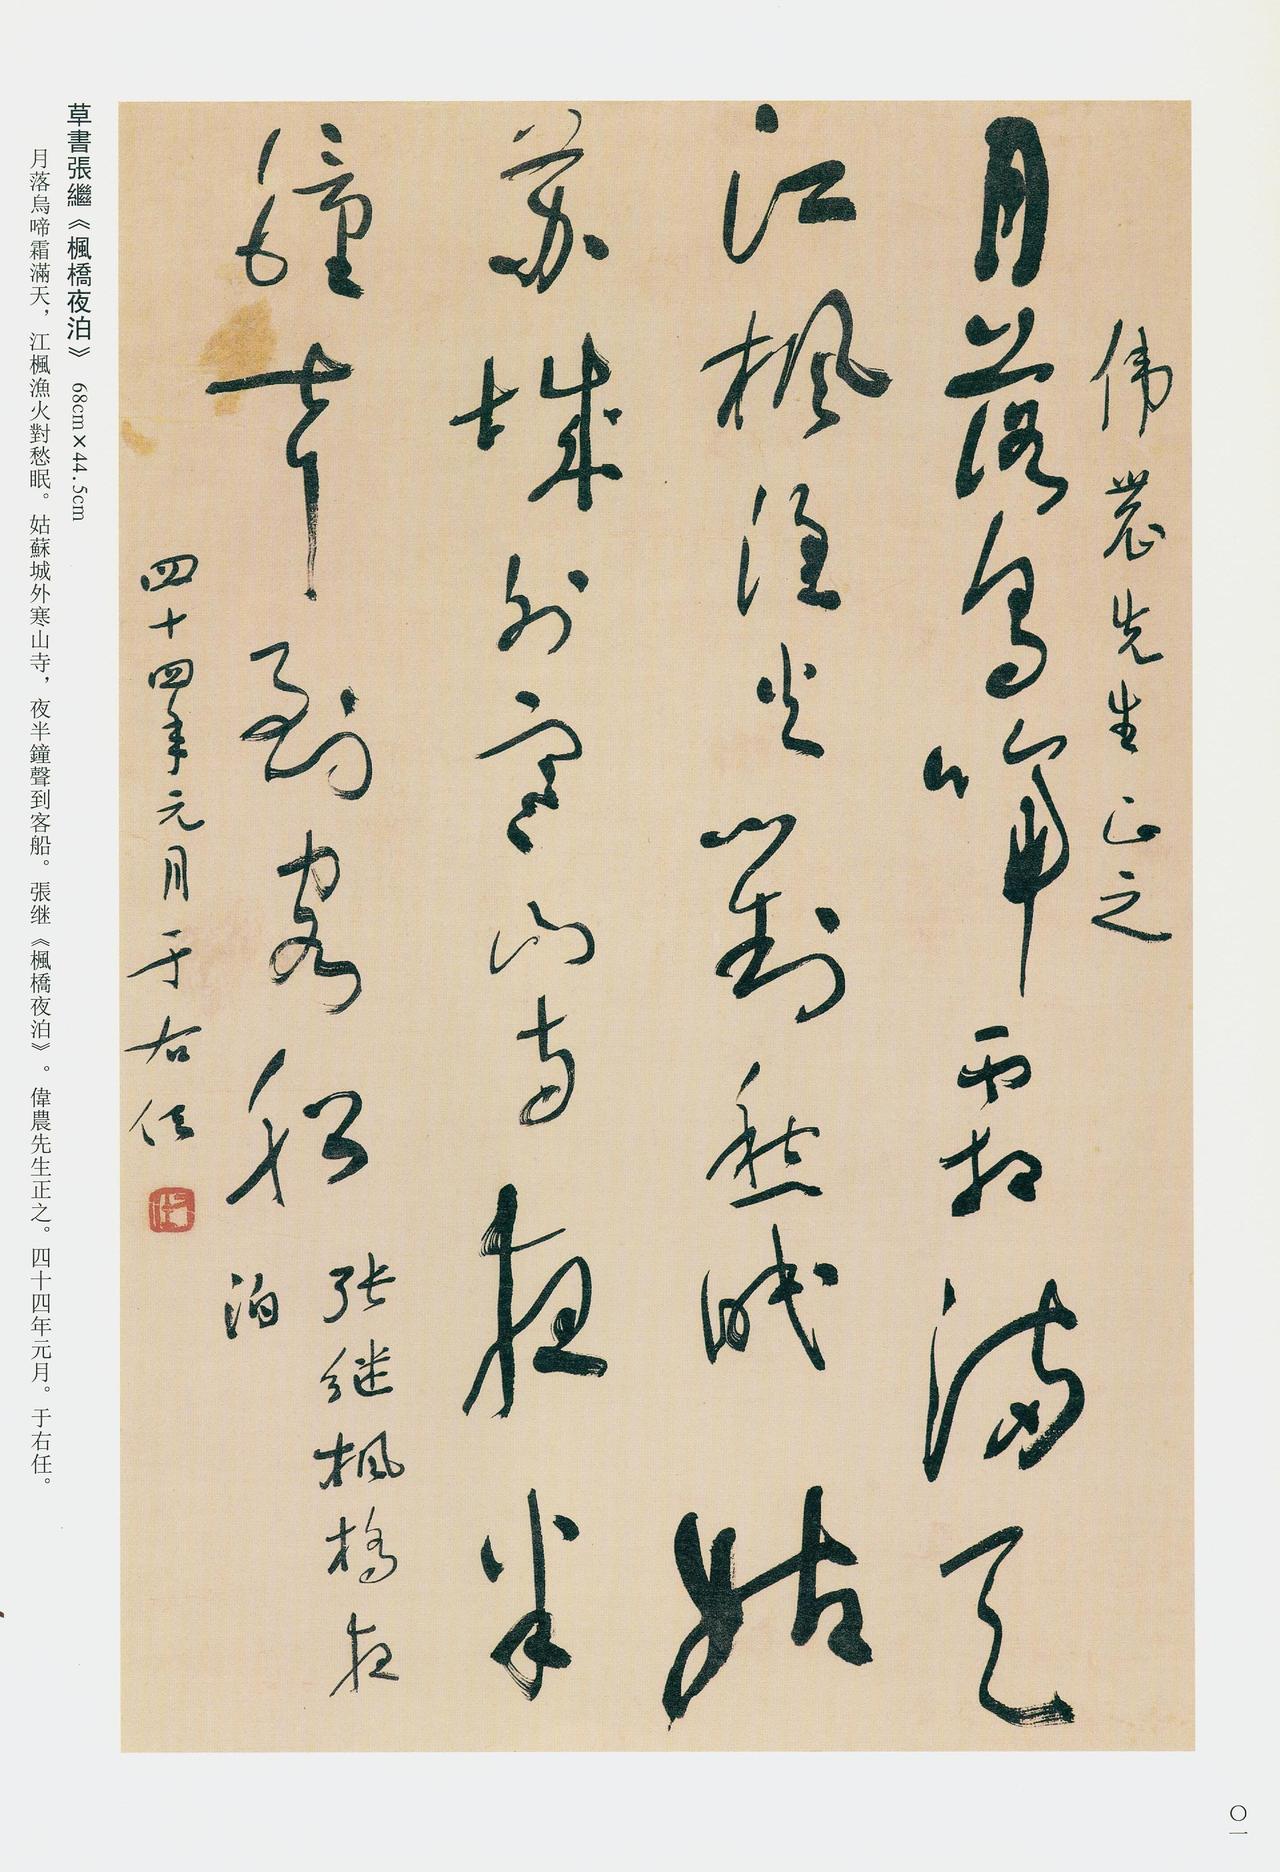 偉農先生正之
月落烏啼霜滿天
江楓漁火對愁眠姑
蘇城外寒山寺夜半
鐘聲到客船
张继楓橋夜
泊
四十四年元月于右任
草書張繼《楓橋夜泊》 68cm×44.5cm
月落烏啼霜滿天，江楓漁火對愁眠。姑蘇城外寒山寺，夜半鐘聲到客船。張继《楓橋夜泊》。偉農先生正之。四十四年元月。于右任。
〇一